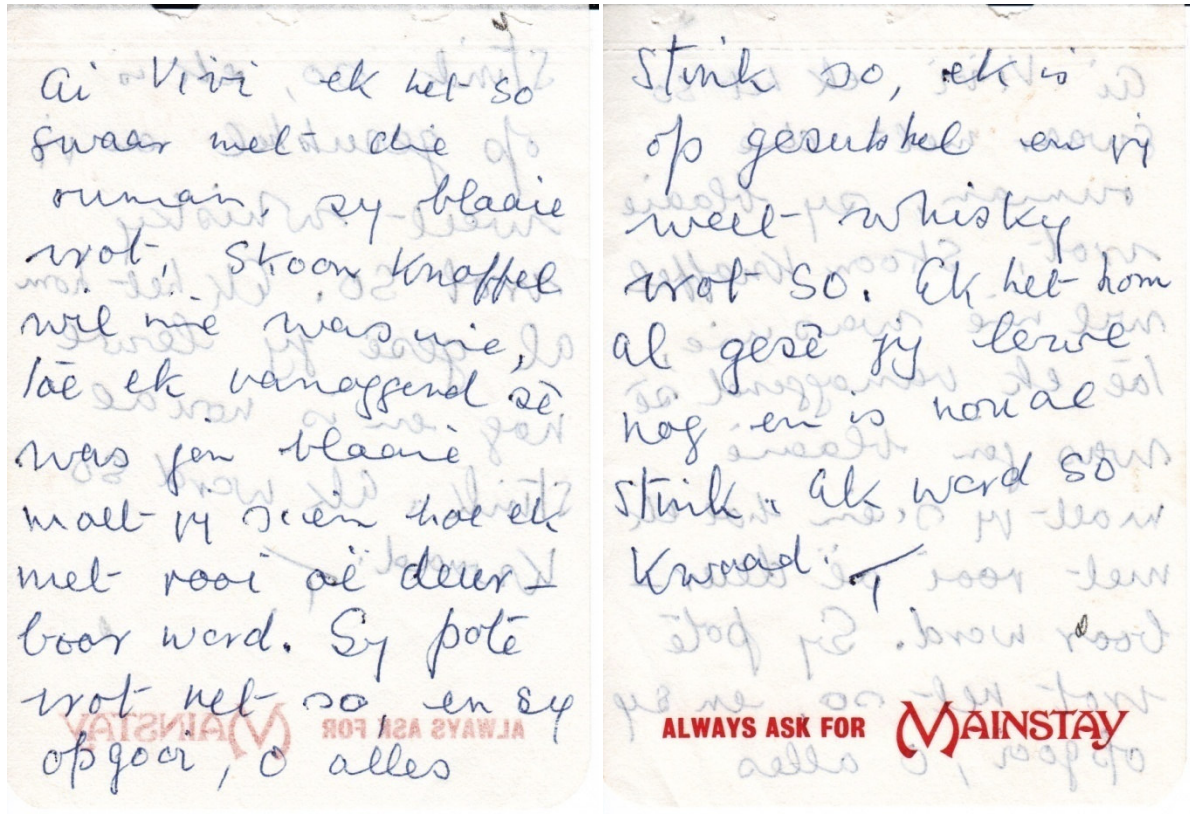 Ai Vivi ek het so
swaar met die
ouman, sy blaaie
vrot, skoon knaffel
wil nie was nie,
toe ek vanoggend sê
was jou blaaie
moet jy sien hoe ek
met rooi oë deur-
boor word. Sy pote
vrot net so, en sy
opgooi, o alles
stink so, ek is
op gesukkel en jy
weet whisky
vrot so. Ek het hom
al gesê jy lewe
nog en is nou al
stink. Ek word so
kwaad. T
ALWAYS ASK FOR MAINSTAY